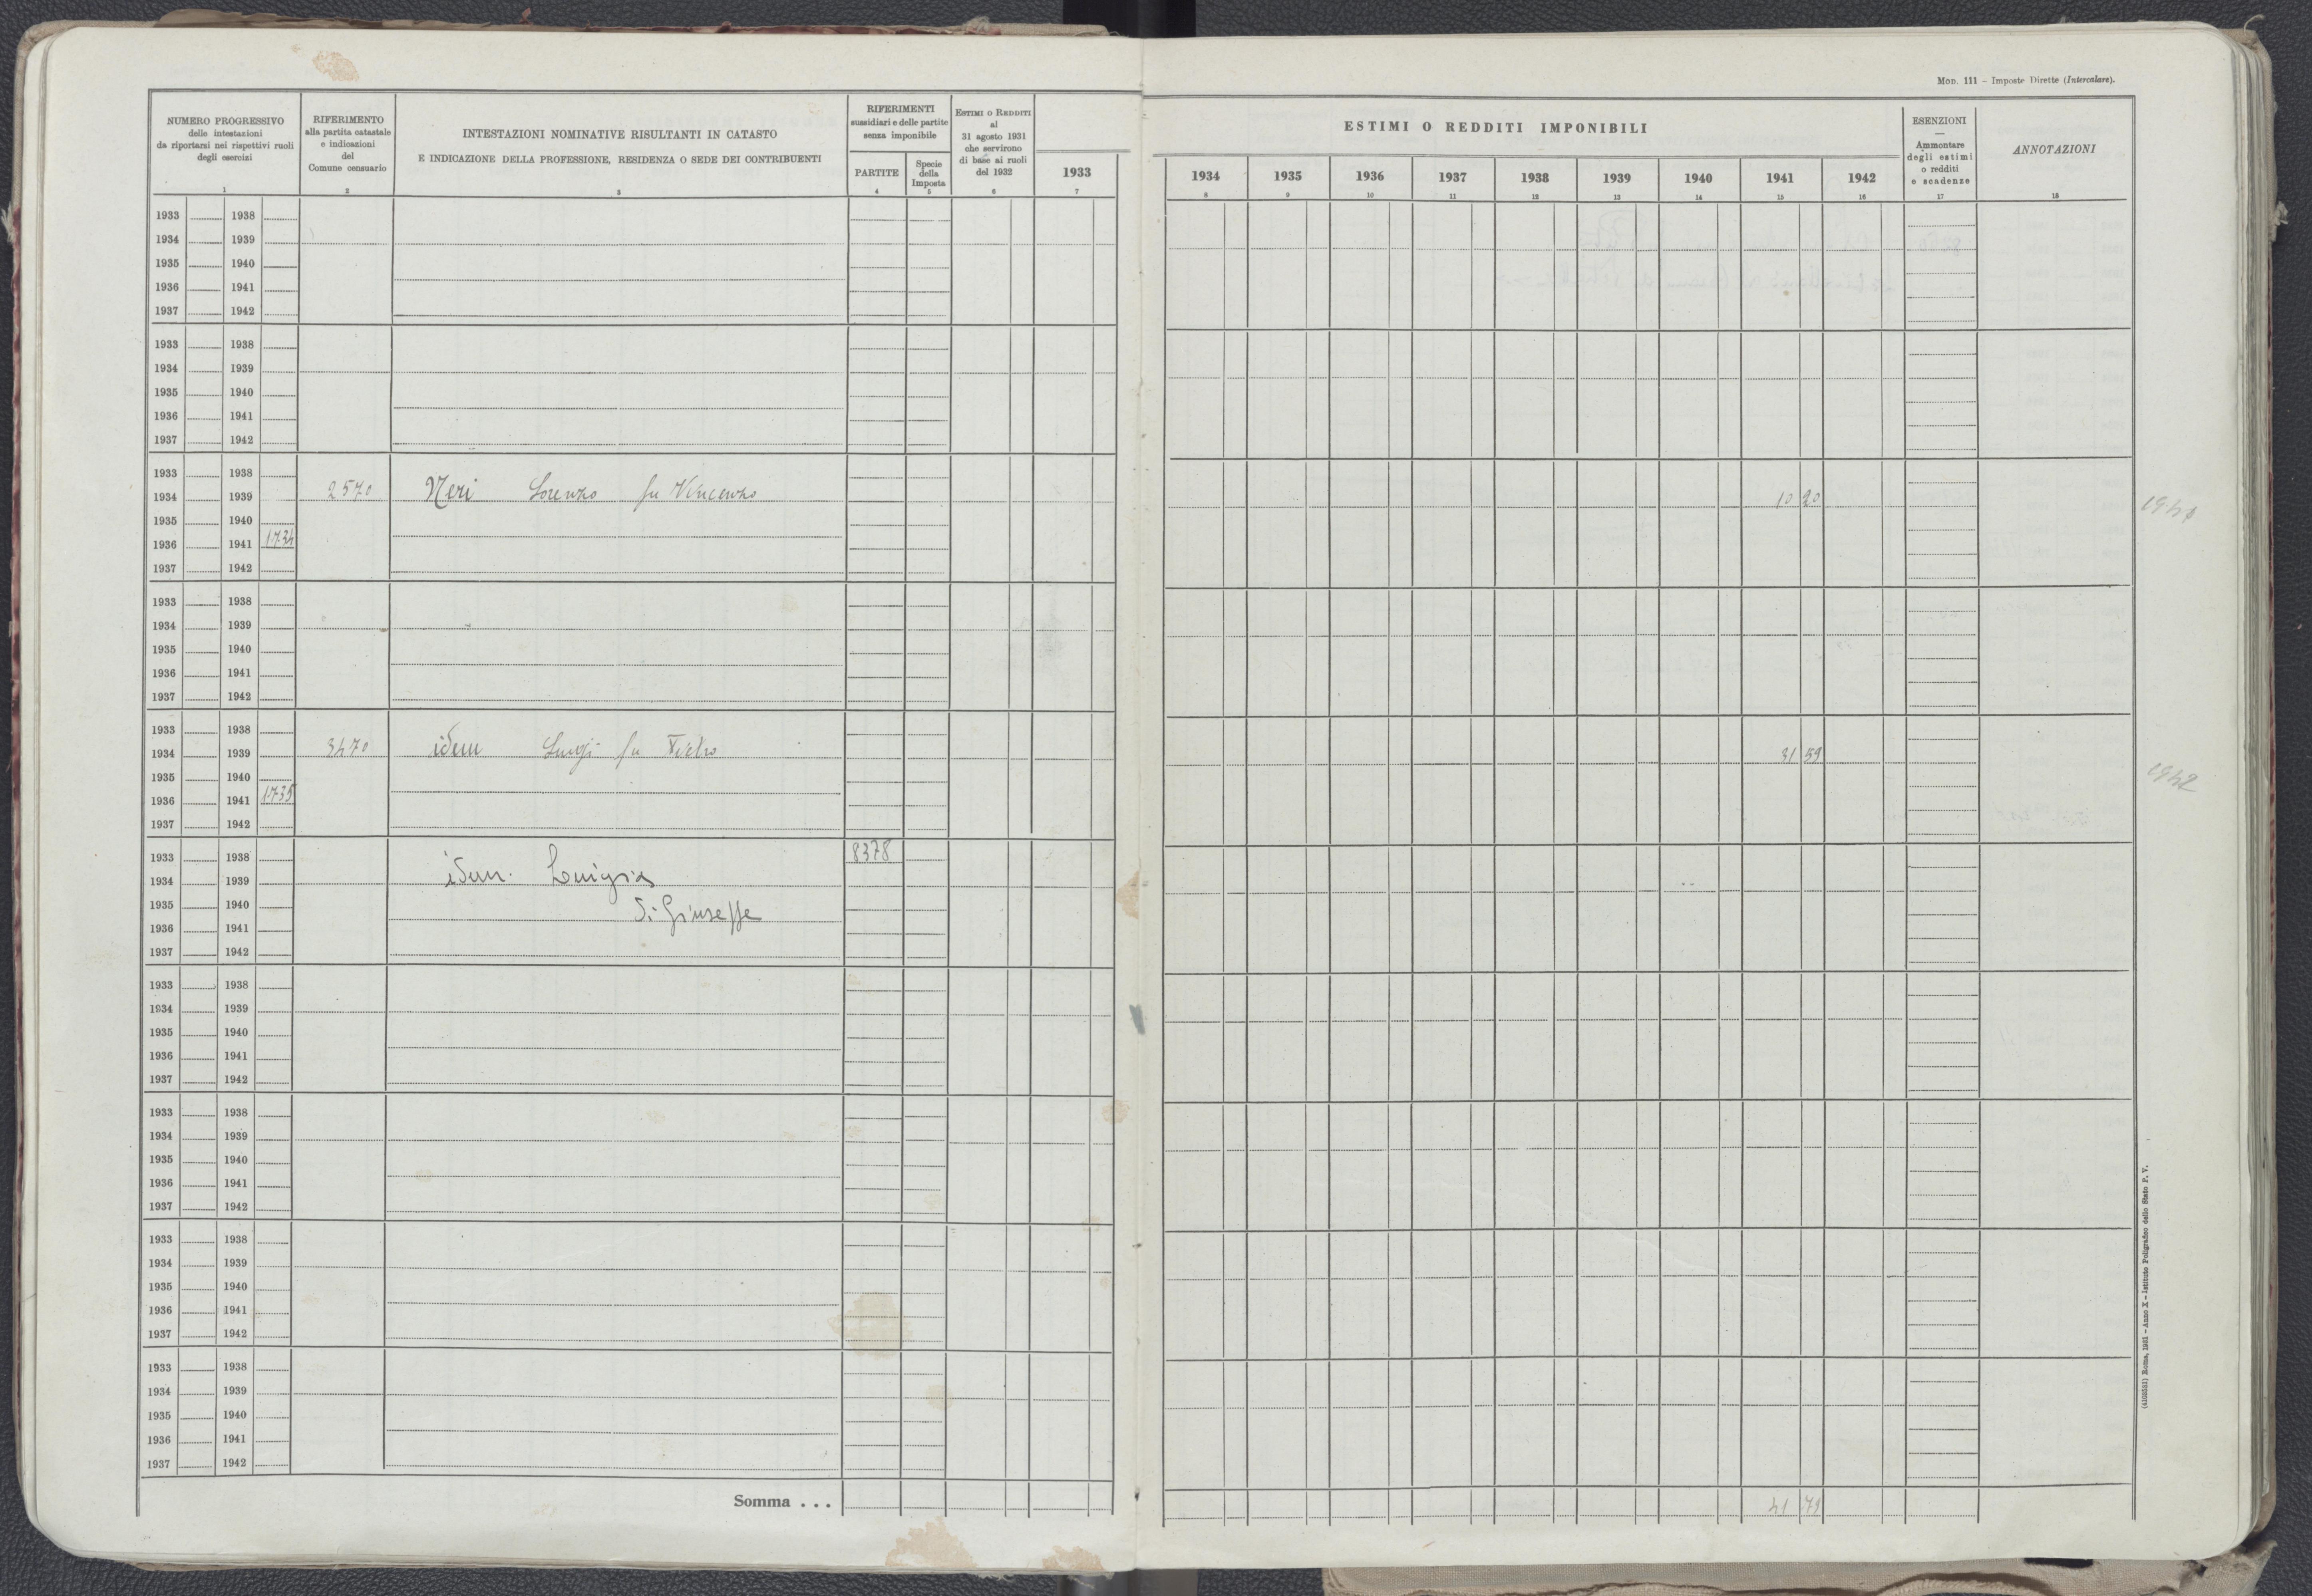 Mod. 111 – Imposte Dirette (Intercalare).
NUMERO PROGRESSIVO
delle intestazioni
da riportarsi nei rispettivi ruoli
degli esercizi
1
RIFERIMENTO
alla partita catastale
e indicazioni
del
Comune censuario
2
INTESTAZIONI NOMINATIVE RISULTANTI IN CATASTO
E INDICAZIONE DELLA PROFESSIONE, RESIDENZA O SEDE DEI CONTRIBUENTI
3
RIFERIMENTI
sussidiari e delle partite
senza imponibile
PARTITE
4
Specie
della
Imposta
5
ESTIMI O REDDITI
al
31 agosto 1931
che servirono
di base ai ruoli
del 1932
6
1933
7
ESTIMI O REDDITI IMPONIBILI
1934 1935 1936 1937 1938 1939 1940 1941 1942
8 9 10 11 12 13 14 15 16
ESENZIONI
—
Ammontare
degli estimi
o redditi
e scadenze
17
ANNOTAZIONI
18
1933 1938
1934 1939
1935 1940
1936 1941
1937 1942
1933 1938
1934 1939
1935 1940
1936 1941
1937 1942
1933 1938
1934 1939 2570 Neri Lorenzo fu Vincenzo 10 20
1935 1940
1936 1941 1734
1937 1942
1933 1938
1934 1939
1935 1940
1936 1941
1937 1942
1933 1938
1934 1939 3470 idem Luigi fu Pietro 31 59
1935 1940
1936 1941 1735
1937 1942
1942
1933 1938 8378
1934 1939 idem. Luigia
1935 1940 di Giuseppe
1936 1941
1937 1942
1933 1938
1934 1939
1935 1940
1936 1941
1937 1942
1933 1938
1934 1939
1935 1940
1936 1941
1937 1942
1933 1938
1934 1939
1935 1940
1936 1941
1937 1942
1933 1938
1934 1939
1935 1940
1936 1941
1937 1942
Somma . . . 41 79
(4105531) Roma, 1931 – Anno X – Istituto Poligrafico dello Stato P. V.